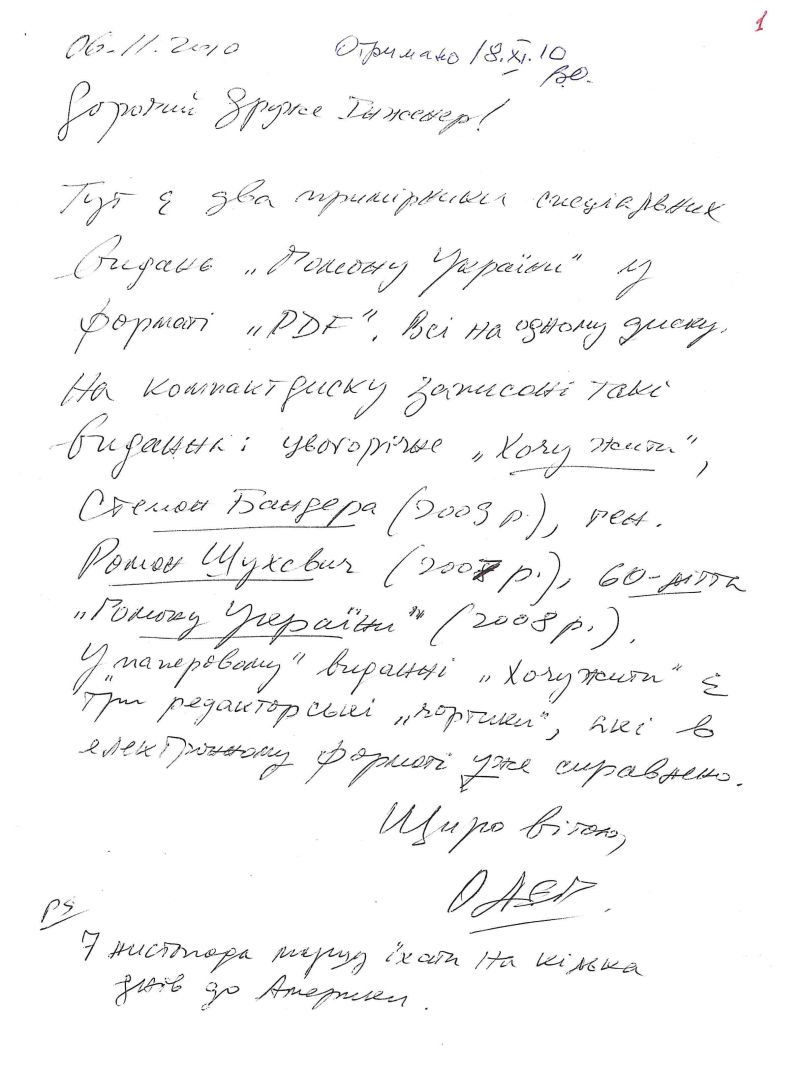 1
06.11.2010 Отримано 18.XI.10
ВО.
Дорогий Друже Інженер!
Тут є два примірники спеціальних
видань „Гомону України" у
форматі „PDF". Всі на одному диску.
На компактдиску записані такі
видання: цьогорічне „Хочу жити",
Степан Бандера (2009 р.), ген.
Роман Шухевич (2007 р.), 60-ліття
„Гомону України" (2008 р.).
У „паперовому" виданні „Хочу жити" є
три редакторські „чортики", які в
електронному форматі уже справлено.
Щиро вітаю,
PS
7 листопада мушу їхати на кілька
днів до Америки.